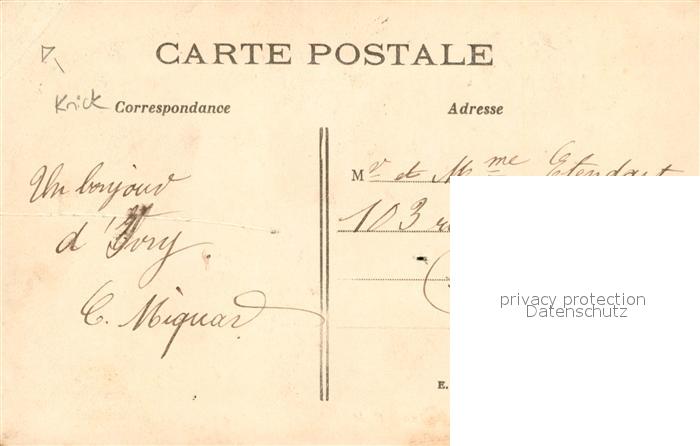 CARTE POSTALE
Knick
Correspondance
Adresse
Un bonjour
d'Ivry.
C. Miquard
Mr et Mme Etendart
103
E.
privacy protection
Datenschutz